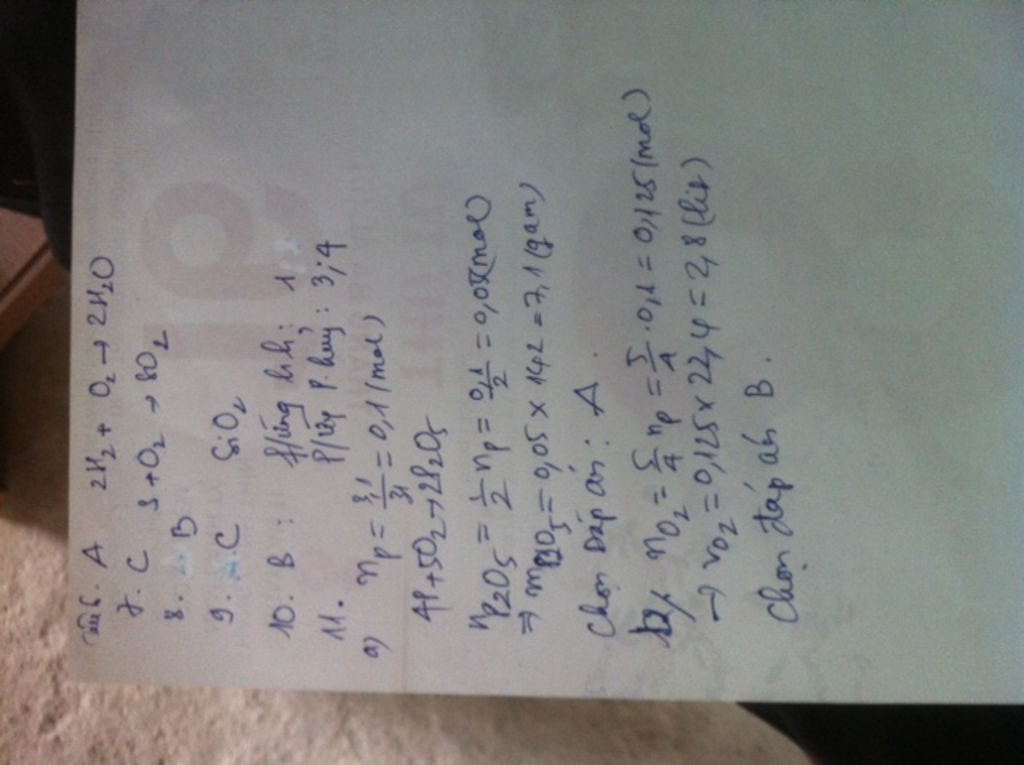 6. A 2H₂ + O₂ → 2H₂O
7. C S + O₂ → SO₂
8. B
9. C SiO₂
10. B : P/ứng h.h: 1
11. P/ứng P. huỷ: 3; 4
a) nP = 3,1/31 = 0,1 (mol)
4P + 5O₂ → 2P₂O₅
nP₂O₅ = 1/2 nP = 0,1/2 = 0,05 (mol)
⇒ mP₂O₅ = 0,05 x 142 = 7,1 (gam)
Chọn Đáp án : A .
b, nO₂ = 5/4 nP = 5/4 . 0,1 = 0,125 (mol)
→ VO₂ = 0,125 x 22,4 = 2,8 (lít)
Chọn đáp án B .